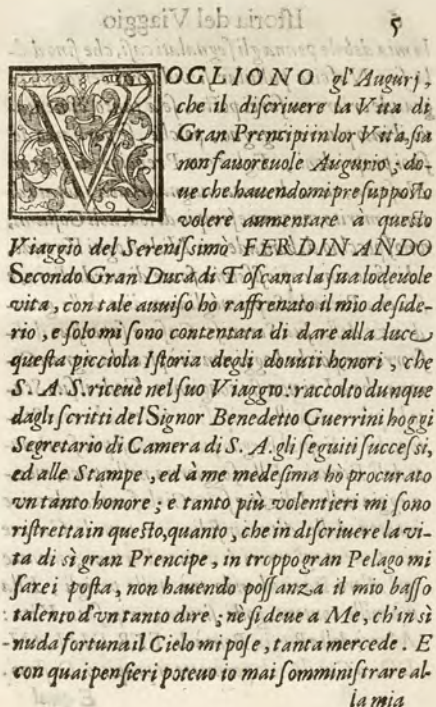 5
VOGLIONO gl'Augurj,
che il discriuere la Vita di
Gran Prencipi in lor Vita, sia
non fauoreuole Augurio; do-
ue che hauendomi presupposto
volere aumentare à questo
Viaggio del Serenissimo FERDINANDO
Secondo Gran Duca di Toscana la sua lodeuole
vita, con tale auuiso hò raffrenato il mio deside-
rio, e solo mi sono contentata di dare alla luce
questa picciola Istoria degli douuti honori, che
S. A. S. riceuè nel suo Viaggio: raccolto dunque
dagli scritti del Signor Benedetto Guerrini hoggi
Segretario di Camera di S. A. gli seguiti successi,
ed alle Stampe, ed à me medesima hò procurato
vn tanto honore; e tanto più volentieri mi sono
ristretta in questo, quanto, che in discriuere la vi-
ta di sì gran Prencipe, in troppo gran Pelago mi
sarei posta, non hauendo possanza il mio basso
talento d'vn tanto dire; nè si deue a Me, ch'in sì
nuda fortuna il Cielo mi pose, tanta mercede. E
con quai pensieri poteuo io mai somministrare al-
la mia